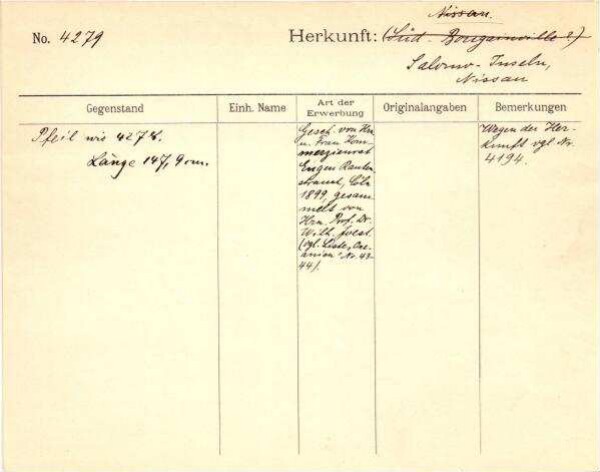 Nissan.
No. 4279
Herkunft: (Süd-Bougainville?)
Salomo-Inseln,
Nissan
Gegenstand
Einh. Name
Art der
Erwerbung
Originalangaben
Bemerkungen
Pfeil wie 4278.
Länge 147,9 cm.
Gesch. von Hrn
u. Frau Kom-
merzienrat
Eugen Rauten-
strauch, Cöln
1899, gesam-
melt von
Hrn. Prof. Dr.
Wilh. Joest.
(vgl. Liste „Oce-
anien" Nr. 43-
44).
Wegen der Her-
kunft vgl. Nr.
4194.